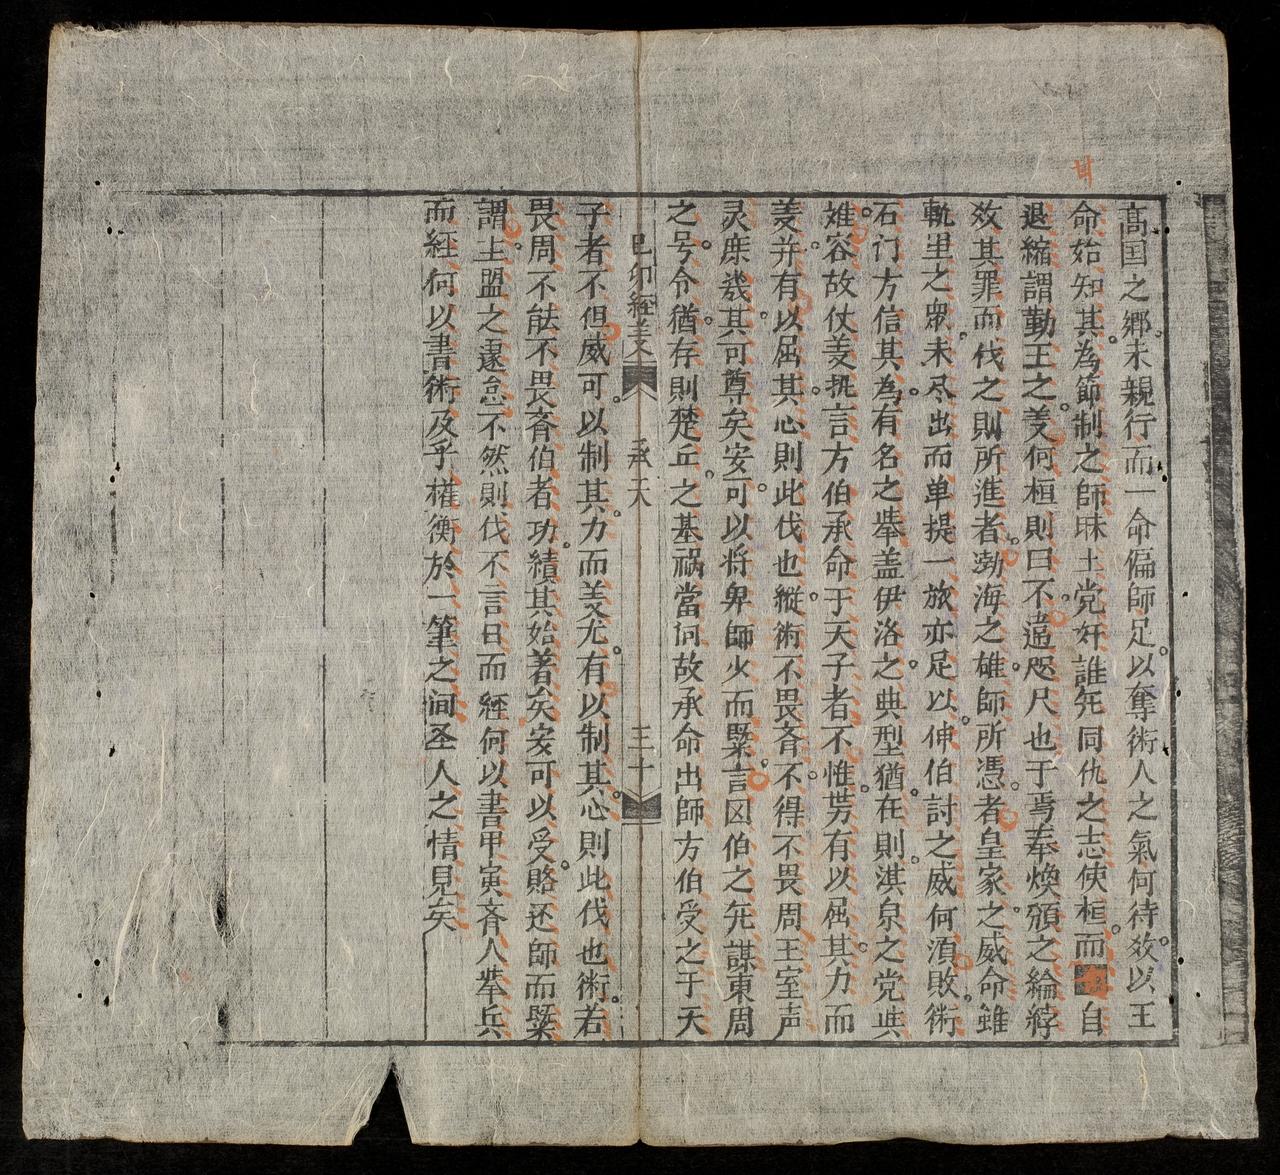 高国之郷未親行而一命偏師足以奪術人之氣何待效以王
命始知其為節制之師昧土党奸誰死同仇之志使桓而自
退縮謂勤王之羙何桓則曰不違咫尺也于焉奉煥頒之綸綍
效其罪而伐之則所進者渤海之雄師所憑者皇家之威命雖
軌里之衆未尽出而单提一旅亦足以伸伯討之威何湏敗術
石门方信其為有名之㪯盖伊洛之典型猶在則淇泉之党㫷
雉容故仗羙執言方伯承命于天子者不惟労有以屈其力而
羙并有以屈其心則此伐也縱術不畏斉不得不畏周王室声
灵庶幾其可尊矣安可以将卑師火而緊言囚伯之死謀東周
之号令猶存則楚丘之基祸當何故承命出師方伯受之于天
己卯経羙 承天 三十
子者不但威可以制其力而羙尤有以制其心則此伐也術若
畏周不能不畏斉伯者功績其始著矣安可以受賂还師而槩
謂主盟之遽怠不然則伐不言日而經何以書甲寅斉人㪯兵
而経何以書術及乎權衡於一筆之间圣人之情見矣